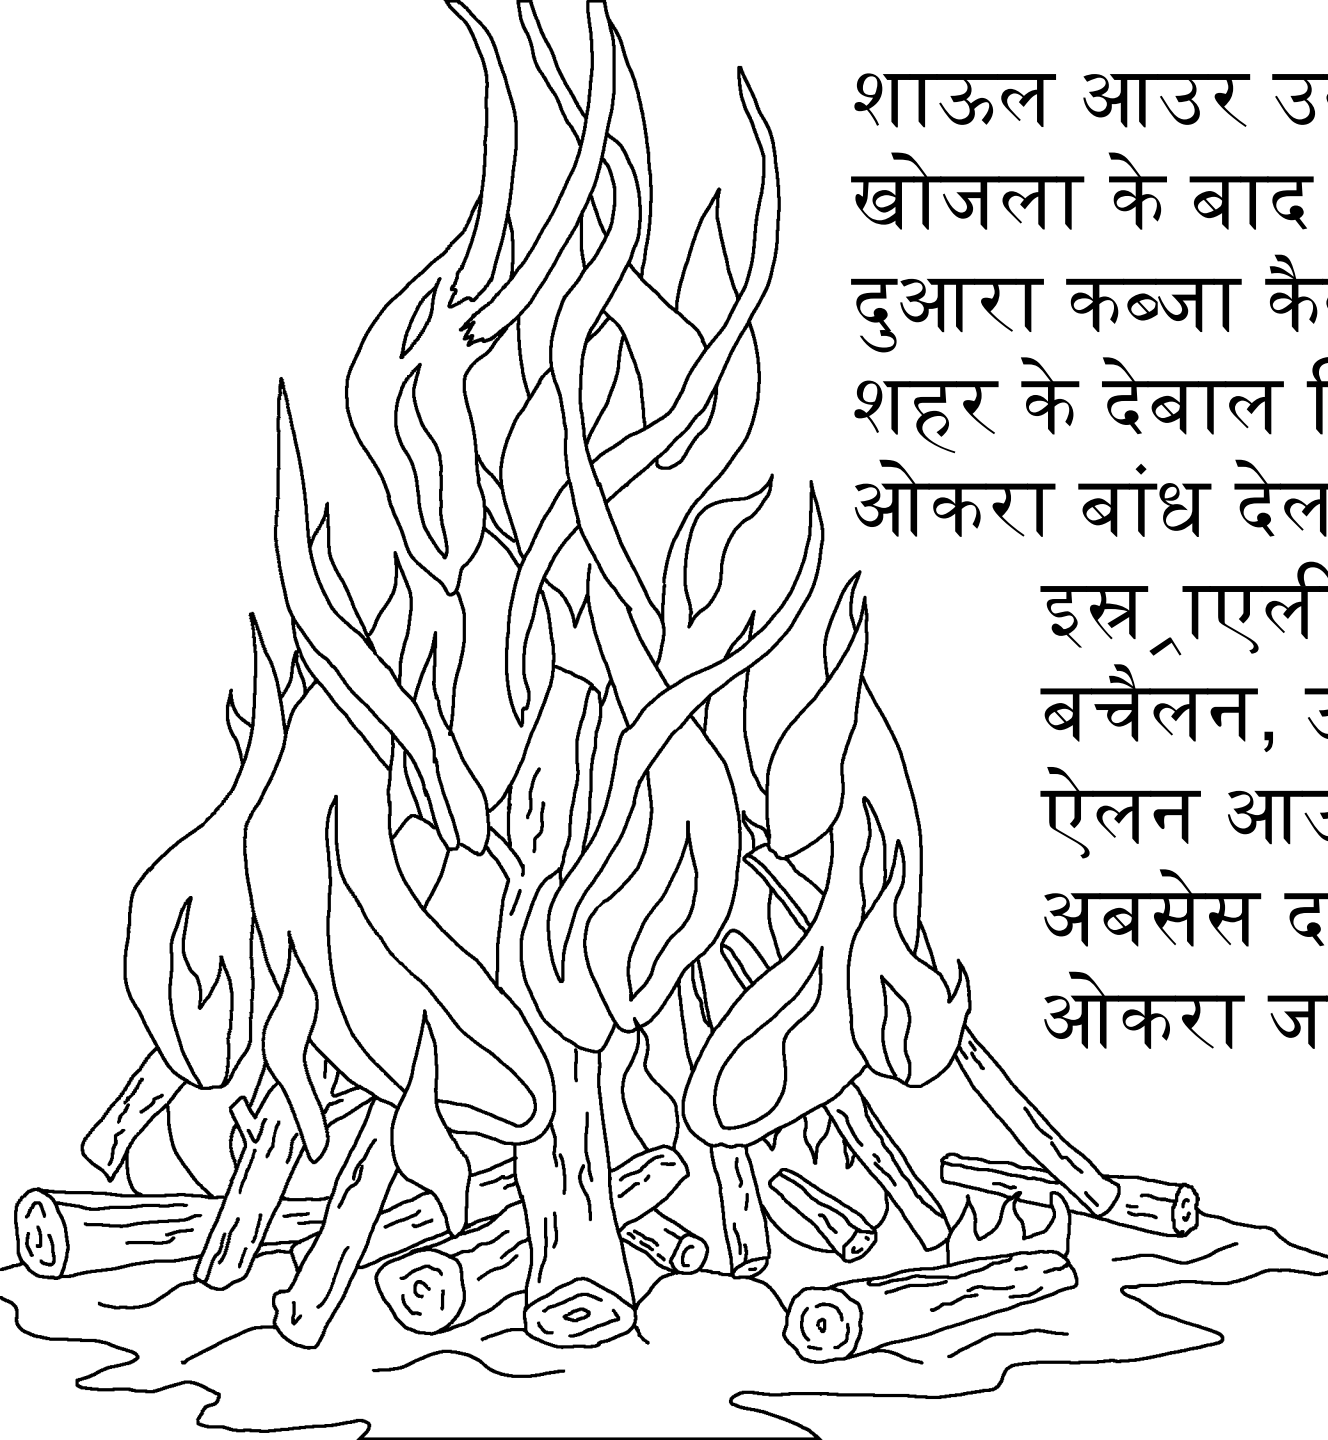 शाऊल आउर
खोजला के बाद
दुआरा कब्जा
शहर के देबाल
ओकरा बांध देल
इस्र्राएली
बचैलन,
ऐलन आउ
अबसेस द
ओकरा ज